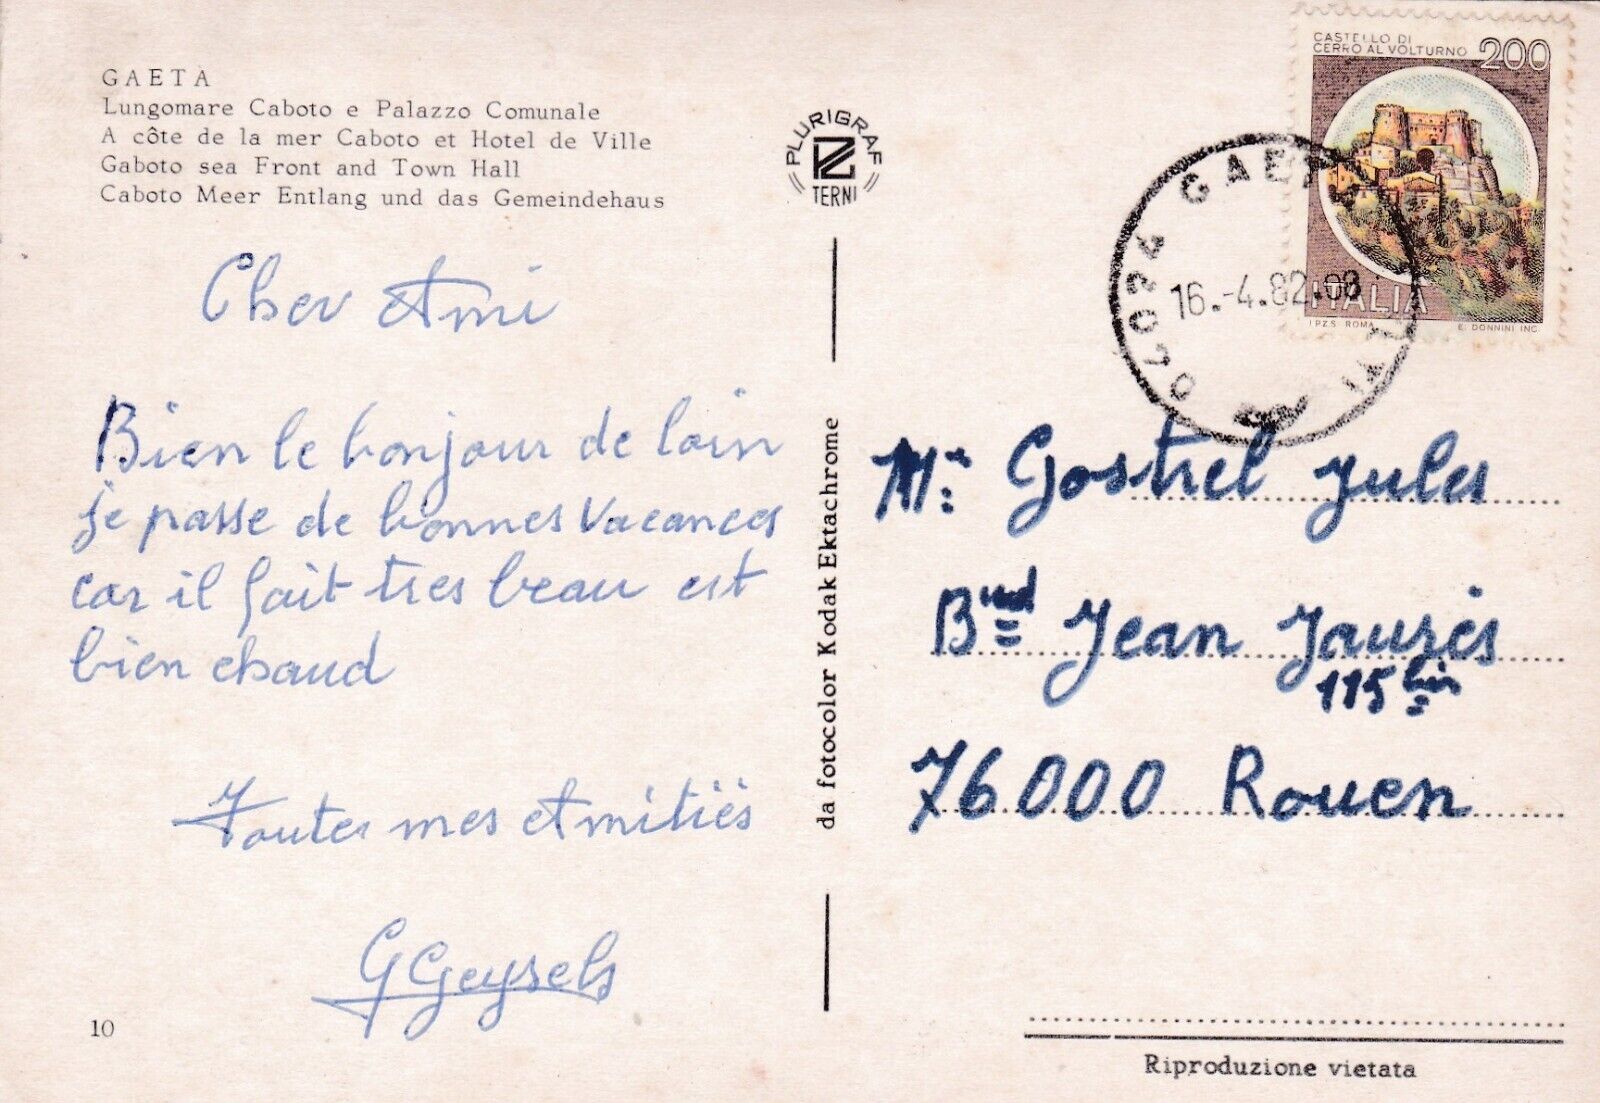 GAETA
Lungomare Caboto e Palazzo Comunale
A côte de la mer Caboto et Hotel de Ville
Gaboto sea Front and Town Hall
Caboto Meer Entlang und das Gemeindehaus
PLURIGRAF
TERNI
CASTELLO DI
CERRO AL VOLTURNO 200
ITALIA
I.P.Z.S. ROMA E. DONNINI INC.
04024 GAETA
16.-4.82.08
Cher Ami
Bien le bonjour de loin
je passe de bonnes vacances
car il fait tres beau est
bien chaud
Toutes mes Amitiés
G Geysels
10
da fotocolor Kodak Ektachrome
Mr: Gostrel Jules
Bud Jean Jaurès
115 bis
76000 Rouen
Riproduzione vietata